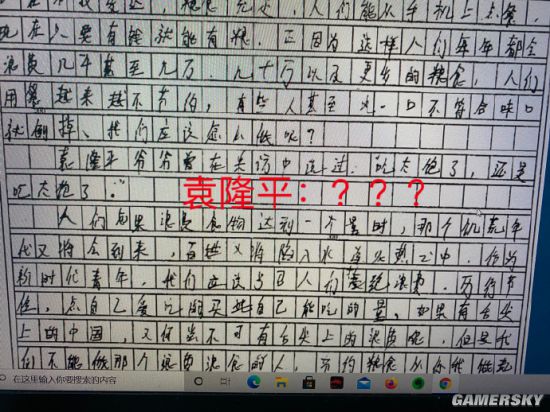 现在人要有钱就能有粮。正因为这样人们每年都会
浪费几千甚至几万、几十万以及更多的粮食,人们
用餐越来越不节俭,有些人甚至义一口不符合味口
就倒掉、我们应该怎么做呢?
袁隆平爷爷曾在采访中说过:吃太饱了,还是
吃太饱了。"
袁隆平:???
人们如果浪费食物达到一个量时,那个饥荒年
代又将会到来,百姓又将陷入水深火热之中,作为
新时代青年,我们应该与国人们拒绝浪费、厉行节
俭,点自己爱吃的买些自己能吃的量,如果有舌尖
上的中国,又何尝不可有舌尖上的浪费呢,但是我
们不能做那个浪费粮食的人,节约粮食从你我做起
在这里输入你要搜索的内容
GAMERSKY